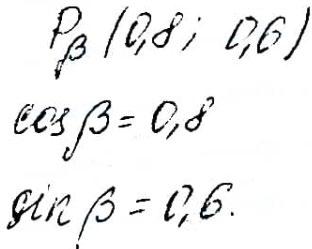 Pβ (0,8; 0,6)
cos β = 0,8
sin β = 0,6.